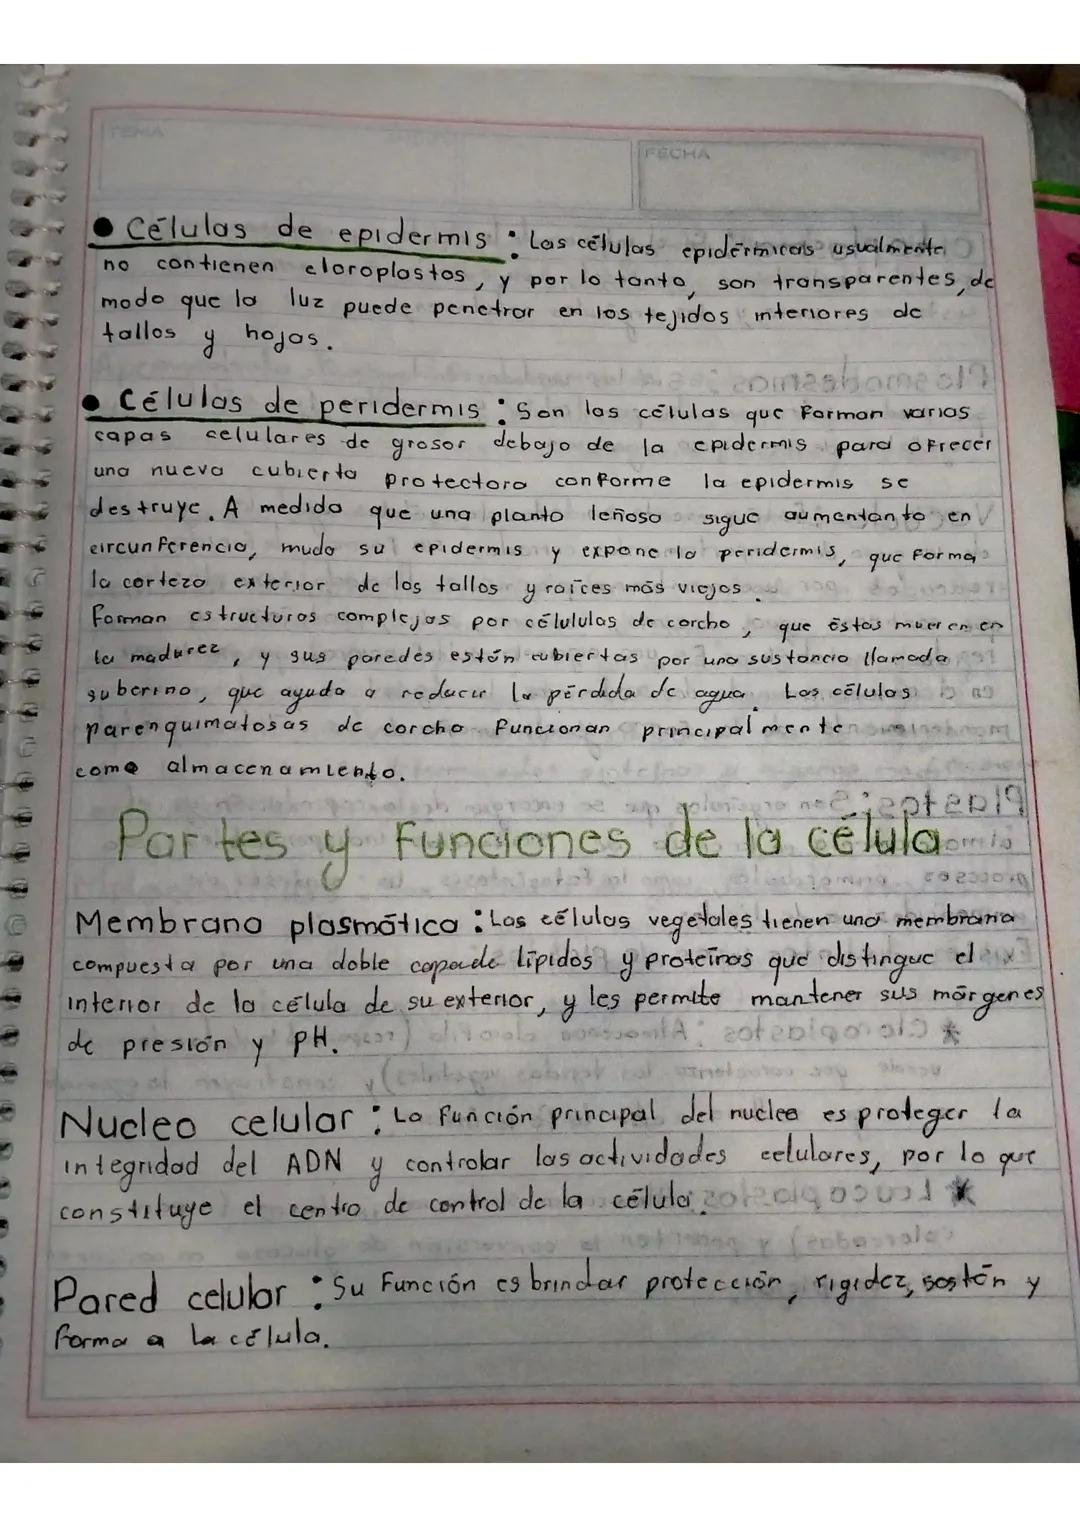 TEMA
FECHA
• Células de epidermis : Las células epidérmicas usualmente
no contienen cloroplastos, y por lo tanto, son transparentes, de
modo que la luz puede penetrar en los tejidos interiores de
tallos y hojas.
• Células de peridermis : Son las células que forman varias
capas celulares de grosor debajo de la epidermis para ofrecer
una nueva cubierta protectora conforme la epidermis se
destruye. A medida que una planta leñosa sigue aumentanto en
circunferencia, muda su epidermis y expone la peridermis, que forma
la corteza exterior de los tallos y raíces más viejos.
Forman estructuras complejas por célululas de corcho, que éstas mueren en
la madurez, y sus paredes están cubiertas por una sustancia llamada
suberina, que ayuda a reducir la pérdida de agua. Las células
parenquimatosas de corcho funcionan principalmente
como almacenamiento.
Partes y funciones de la célula
Membrana plasmática : Las células vegetales tienen una membrana
compuesta por una doble capa de lípidos y proteínas que distingue el
interior de la célula de su exterior, y les permite mantener sus márgenes
de presión y pH.
Nucleo celular : La función principal del nucleo es proteger la
integridad del ADN y controlar las actividades celulares, por lo que
constituye el centro de control de la célula.
Pared celular : Su función es brindar protección, rigidez, sostén y
forma a la célula.